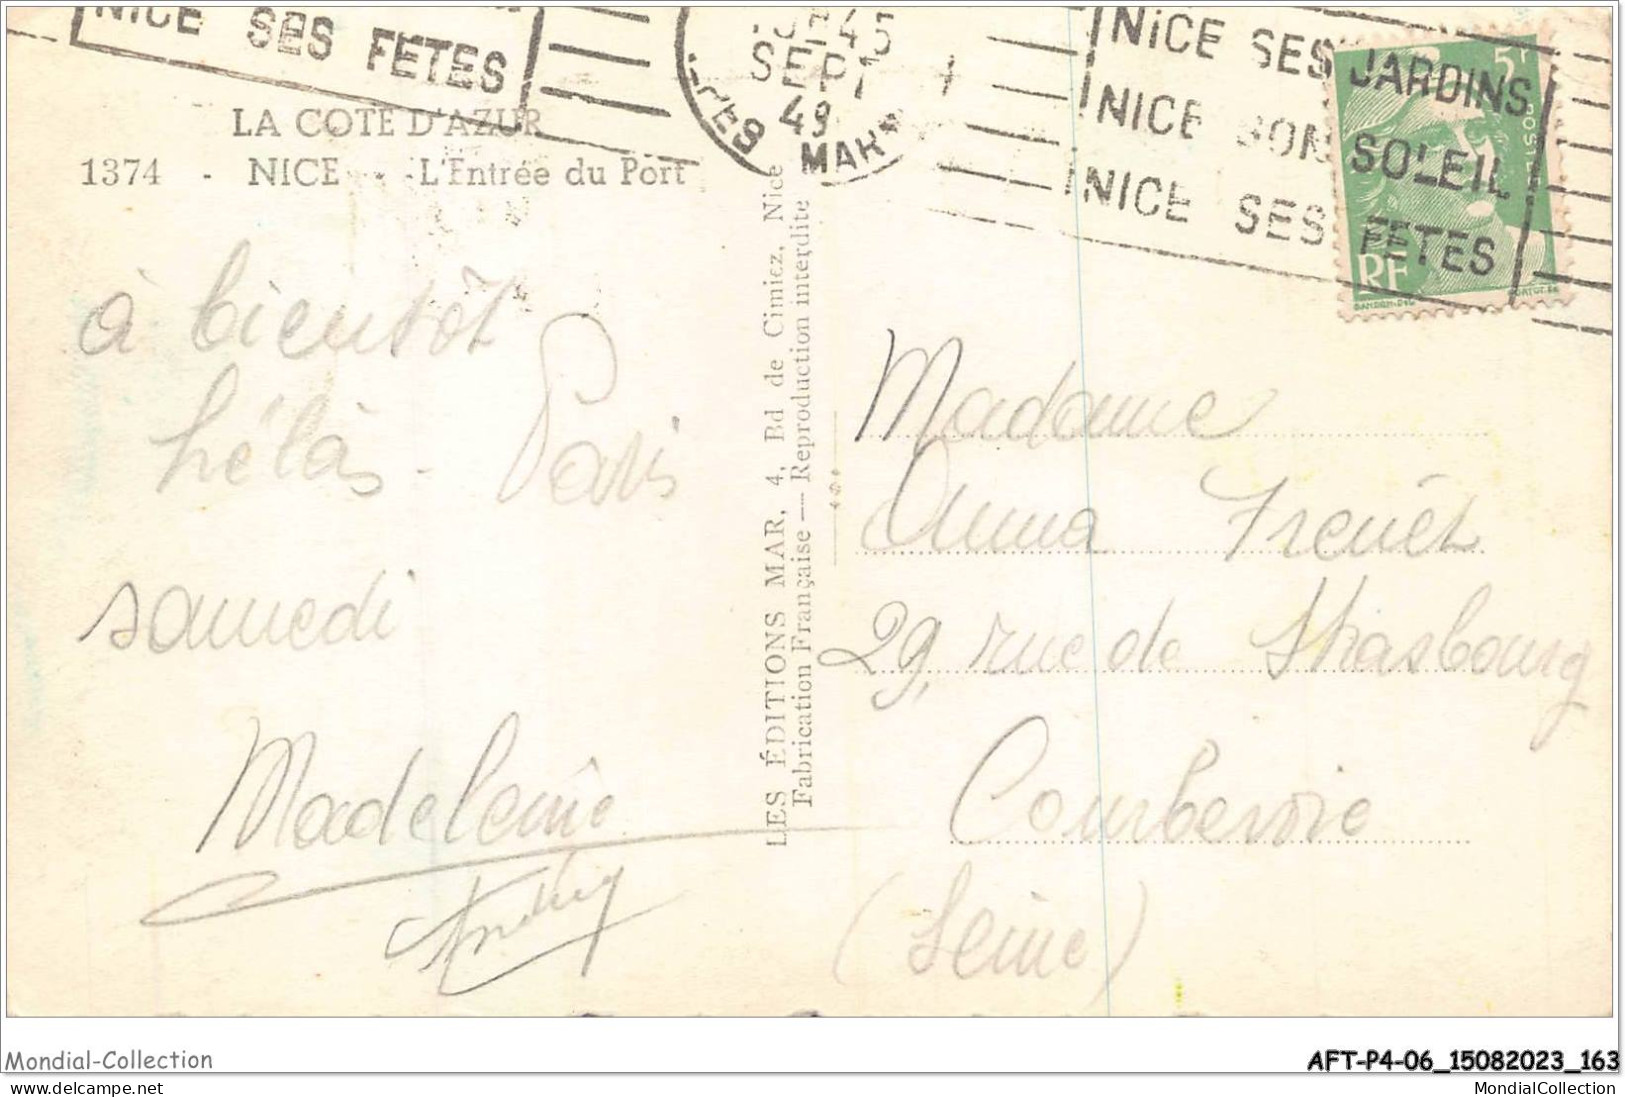 NICE SES FÊTES
SEPT
49
MAR
NICE SES JARDINS
NICE SON SOLEIL
NICE SES FÊTES
5F
POSTES
RF
LA COTE D'AZUR
1374 - NICE - L'Entrée du Port
à bientôt
hélàs - Paris
samedi
Madeleine
LES ÉDITIONS MAR, 4, Bd de Cimiez, Nice
Fabrication Française — Reproduction interdite
Madame
Anna Frenét
29, rue de Strasbourg
Courbevoie
(Seine)
Mondial-Collection
AFT-P4-06_15082023_163
Mondial-Collection
MondialCollection